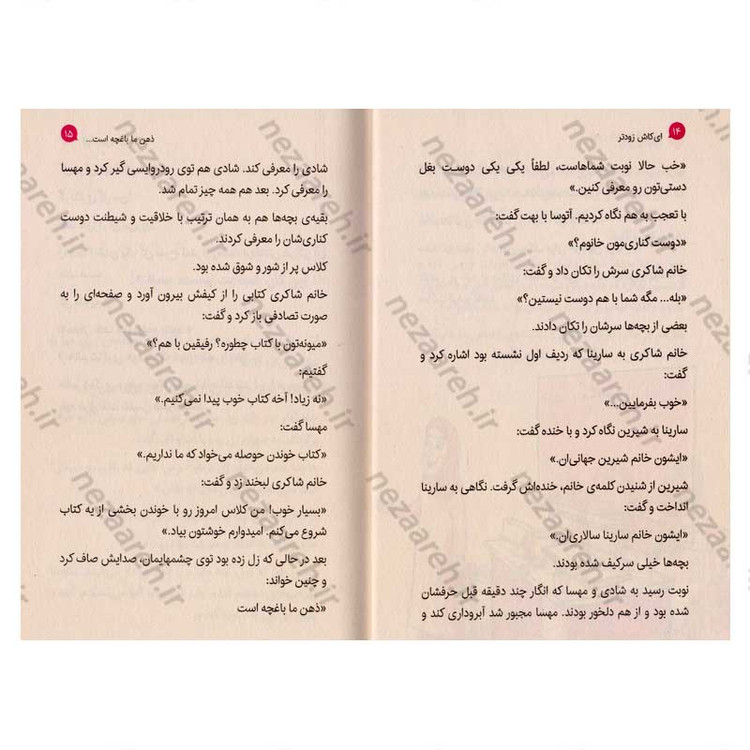 ۱۴
ای‌کاش زودتر
«خب حالا نوبت شماهاست، لطفاً یکی یکی دوست بغل
دستی‌تون رو معرفی کنین.»
با تعجب به هم نگاه کردیم. آتوسا با بهت گفت:
«دوست کناری‌مون خانوم؟»
خانم شاکری سرش را تکان داد و گفت:
«بله... مگه شما با هم دوست نیستین؟»
بعضی از بچه‌ها سرشان را تکان دادند.
خانم شاکری به سارینا که ردیف اول نشسته بود اشاره کرد و
گفت:
«خوب بفرمایین...»
سارینا به شیرین نگاه کرد و با خنده گفت:
«ایشون خانم شیرین جهانی‌ان.»
شیرین از شنیدن کلمه‌ی خانم، خنده‌اش گرفت. نگاهی به سارینا
انداخت و گفت:
«ایشون خانم سارینا سالاری‌ان.»
بچه‌ها خیلی سرکیف شده بودند.
نوبت رسید به شادی و مهسا که انگار چند دقیقه قبل حرفشان
شده بود و از هم دلخور بودند. مهسا مجبور شد آبروداری کند و
۱۵
ذهن ما باغچه است...
شادی را معرفی کند. شادی هم توی رودروایسی گیر کرد و مهسا
را معرفی کرد. بعد هم همه چیز تمام شد.
بقیه‌ی بچه‌ها هم به همان ترتیب با خلاقیت و شیطنت دوست
کناری‌شان را معرفی کردند.
کلاس پر از شور و شوق شده بود.
خانم شاکری کتابی را از کیفش بیرون آورد و صفحه‌ای را به
صورت تصادفی باز کرد و گفت:
«میونه‌تون با کتاب چطوره؟ رفیقین با هم؟»
گفتیم:
«نه زیاد! آخه کتاب خوب پیدا نمی‌کنیم.»
مهسا گفت:
«کتاب خوندن حوصله می‌خواد که ما نداریم.»
خانم شاکری لبخند زد و گفت:
«بسیار خوب! من کلاس امروز رو با خوندن بخشی از یه کتاب
شروع می‌کنم. امیدوارم خوشتون بیاد.»
بعد در حالی که زل زده بود توی چشمهایمان، صدایش صاف کرد
و چنین خواند:
«ذهن ما باغچه است
nezaareh.ir